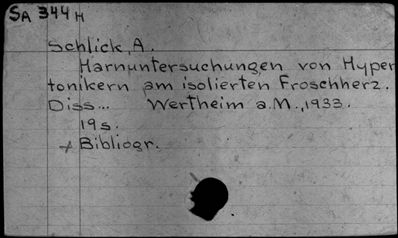 SA 344 H
Schlick, A.
Harnuntersuchungen von Hyper
tonikern am isolierten Froschherz.
Diss... Wertheim a.M., 1933.
19s.
+ Bibliogr.